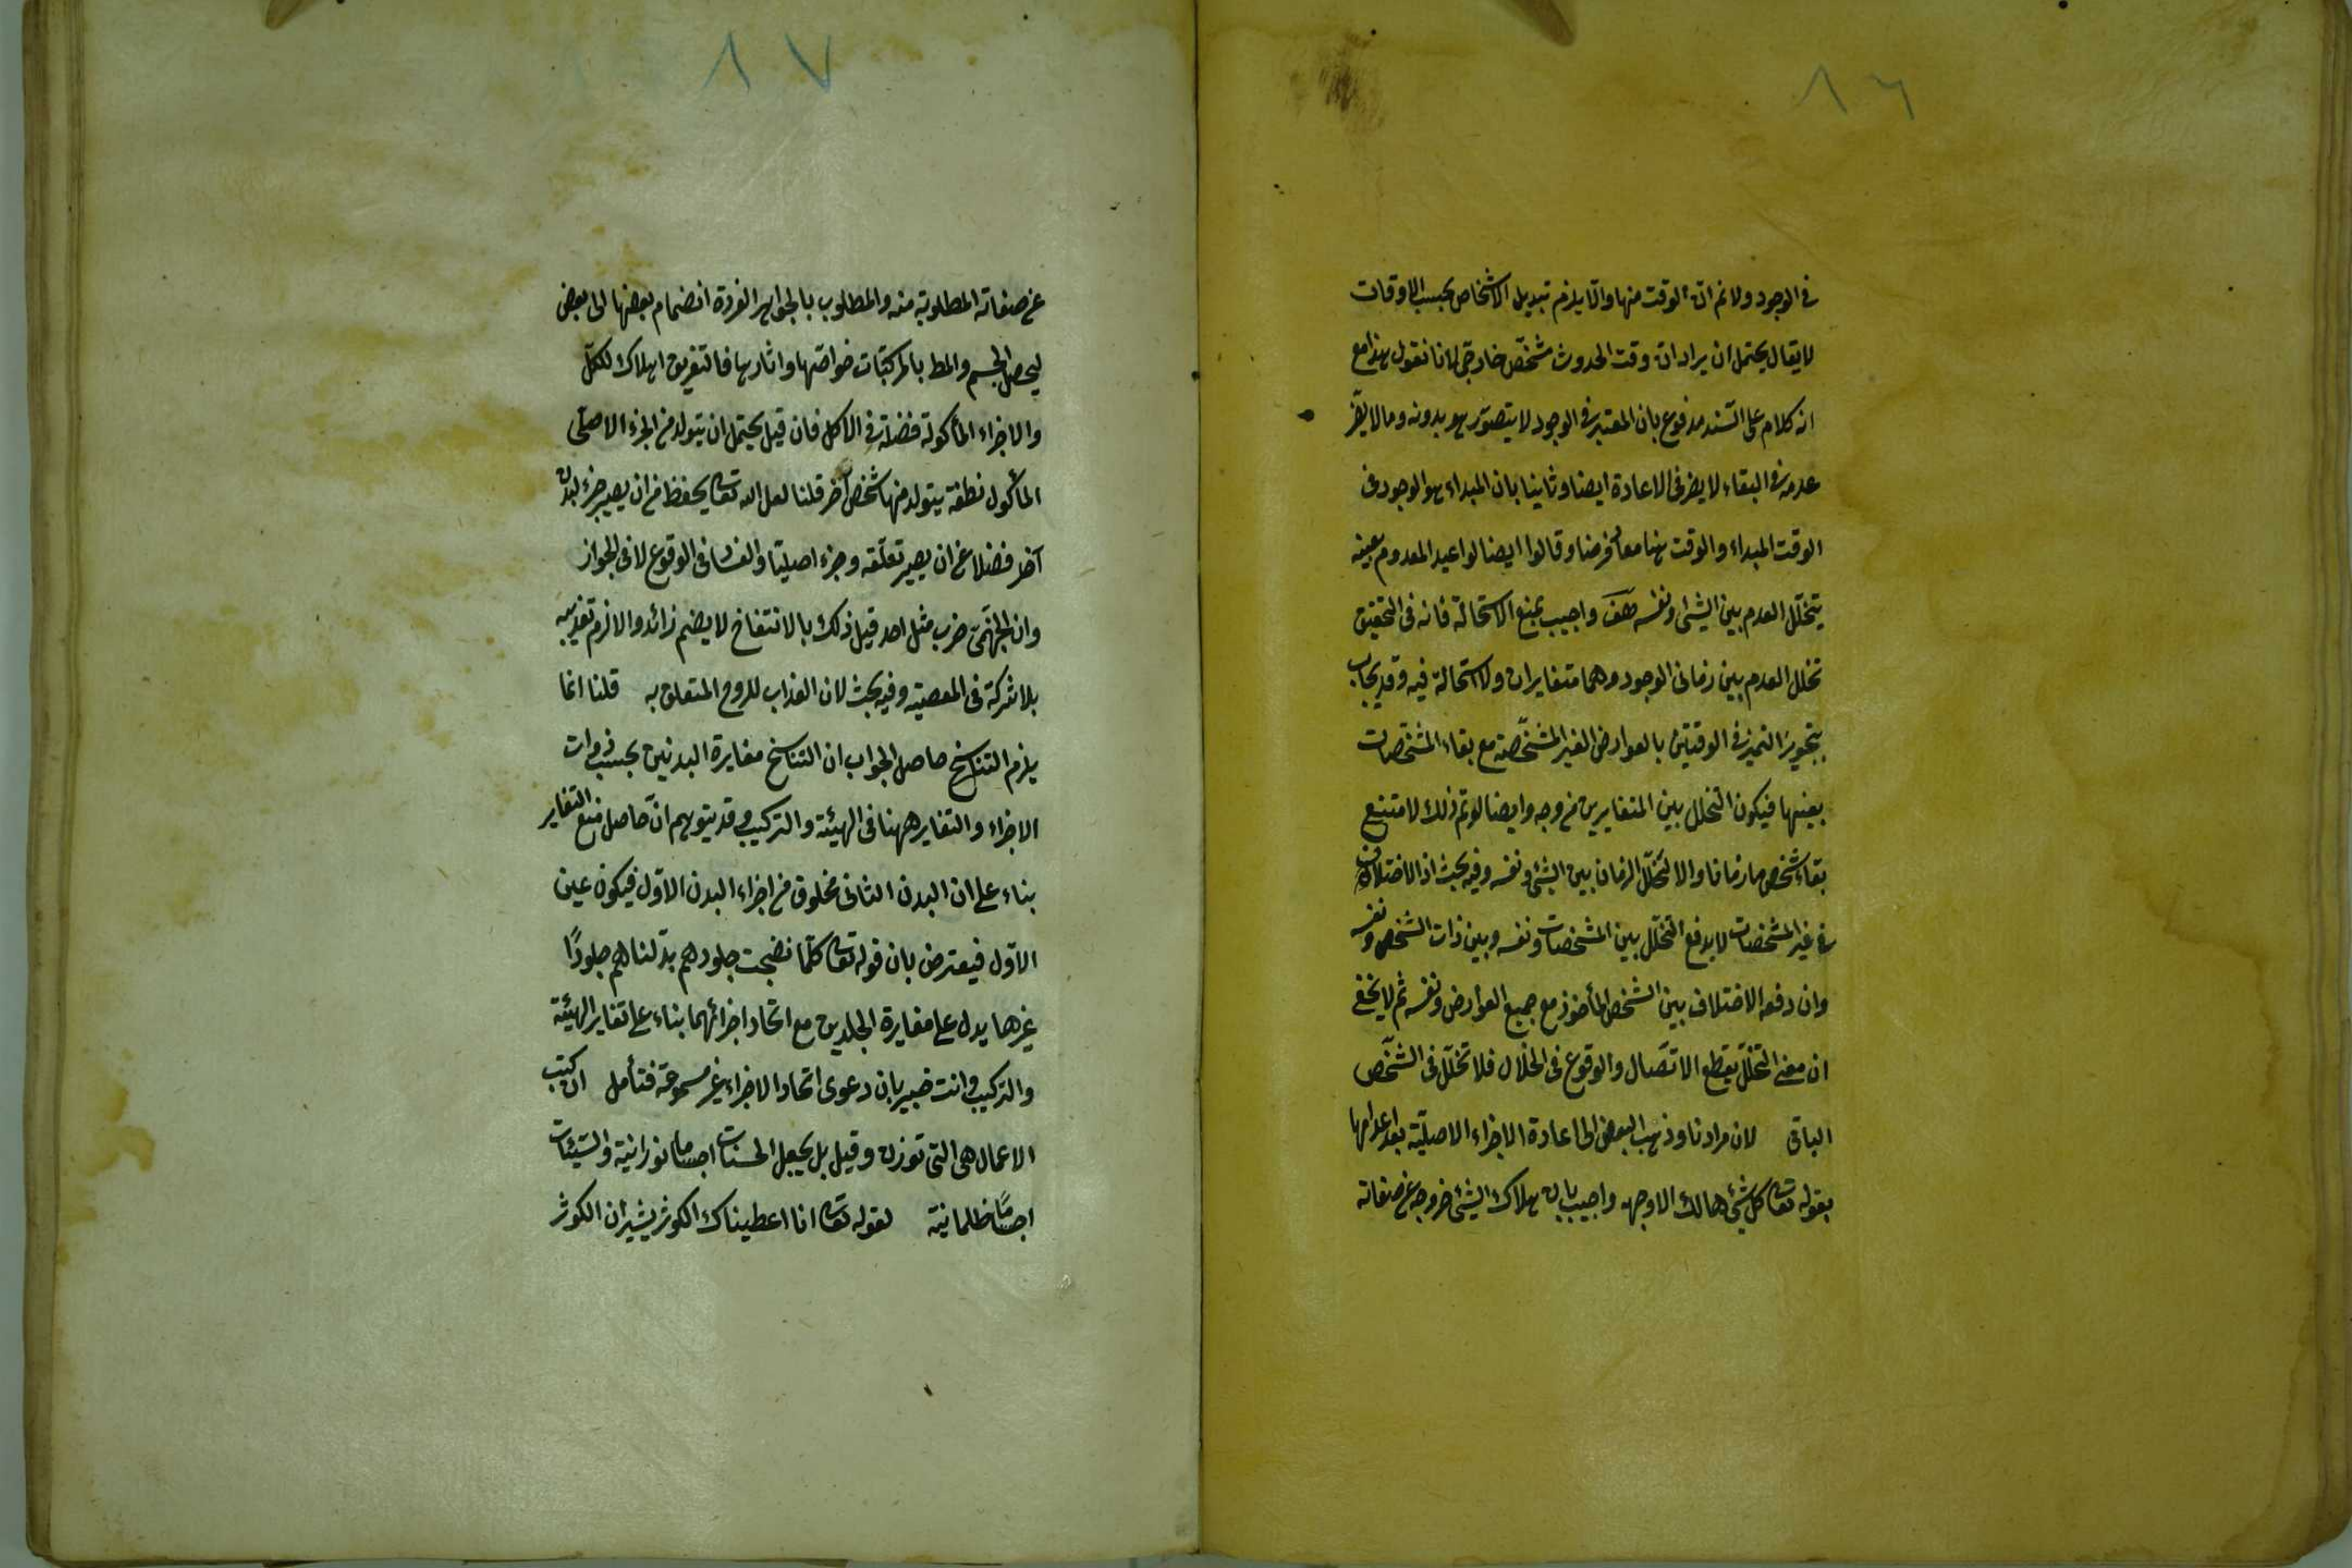 ٨٦
في الوجود ولا نم ان الوقت منها والا يلزم تبديل الاشخاص بحسب الاوقات
لا يقال يحتمل ان يراد ان وقت الحدوث مشخّص خارجي لانا نقول هذا مع
انه كلام على السّند مدفوع بان المعتبر في الوجود لا يتصوّر هو بدونه وما لا يضرّ
عدمه في البقاء لا يضر في الاعادة ايضا وثانيا بان المبداء هو الموجود في
الوقت المبداء والوقت هنا معاد فرضا وقالوا ايضا لو اعيد المعدوم بعينه
يتخلّل العدم بين الشئ ونفسه هف واجيب بمنع الاستحالة فانه في التحقيق
تخلل العدم بين زماني الوجود وهما متغايران ولا استحالة فيه وقد يجاب
بتجويز التميز في الوقتين بالعوارض الغير المشخّصة مع بقاء المشخّصات
بعينها فيكون التخلل بين المتغايرين من وجه وايضا لو تم ذلك لامتنع
بقاء شخص ما زمانا والا لتخلّل الزمان بين الشئ ونفسه وفيه بحث اذ الاختلاف
في غير المشخصات لا يدفع التخلّل بين المشخصات ونفسه وبين ذات الشخص ونفسه
وان دفعه الاختلاف بين الشخص المأخوذ مع جميع العوارض ونفسه ثم لا يخفى
ان معنى التخلّل يقطع الاتّصال والوقوع في الخلال فلا تخلّل في الشخّص
الباقي لان مرادنا وذهب البعض الى اعادة الاجزاء الاصليّة بعد اعدامها
بقوله تعالى كل شئ هالك الا وجهه واجيب بان هلاك الشئ خروجه عن صفاته
٨٧
عن صفاته المطلوبة منه والمطلوب بالجواهر الفردة انضمام بعضها الى بعض
ليحصل الجسم والمط بالمركّبات خواصّها واثارها فالتفريق اهلاك للكلّ
والاجزاء المأكولة فضلة في الاكل فان قيل يحتمل ان يتولد من الجزء الاصلّى
المأكول نطفة يتولد منها شخص آخر قلنا لعل الله تعالى يحفظ من ان يصير جزء لبدن
آخر فضلا عن ان يصير نطفة وجزء اصليّا والفساد في الوقوع لا في الجواز
وان الجهنّمى ضرسه مثل احد قيل ذلك بالانتفاخ لا بضم زائد والا لزم تعذيبه
بلا شركة في المعصية وفيه بحث لان العذاب للروح المتعلق به قلنا انما
يلزم التناسخ حاصل الجواب ان التناسخ مغايرة البدنين بحسب ذوات
الاجزاء والتغاير ههنا في الهيئة والتركيب وقد يتوهم انّ حاصل منع التغاير
بناء على ان البدن الثاني مخلوق من اجزاء البدن الاوّل فيكون عين
الاول فيعترض بان قوله تعالى كلّما نضجت جلودهم بدّلناهم جلودًا
غيرها يدل على مغايرة الجلدين مع اتحاد اجزائهما بناء على تغاير الهيئة
والتركيب وانت خبير بان دعوى اتحاد الاجزاء غير مسموعة فتأمل ان كتب
الاعمال هي التي توزن وقيل بل يجعل الحسنات اجساما نورانية والسّيّئات
اجسامًا ظلمانية لقوله تعالى انا اعطيناك الكوثر يشير ان الكوثر